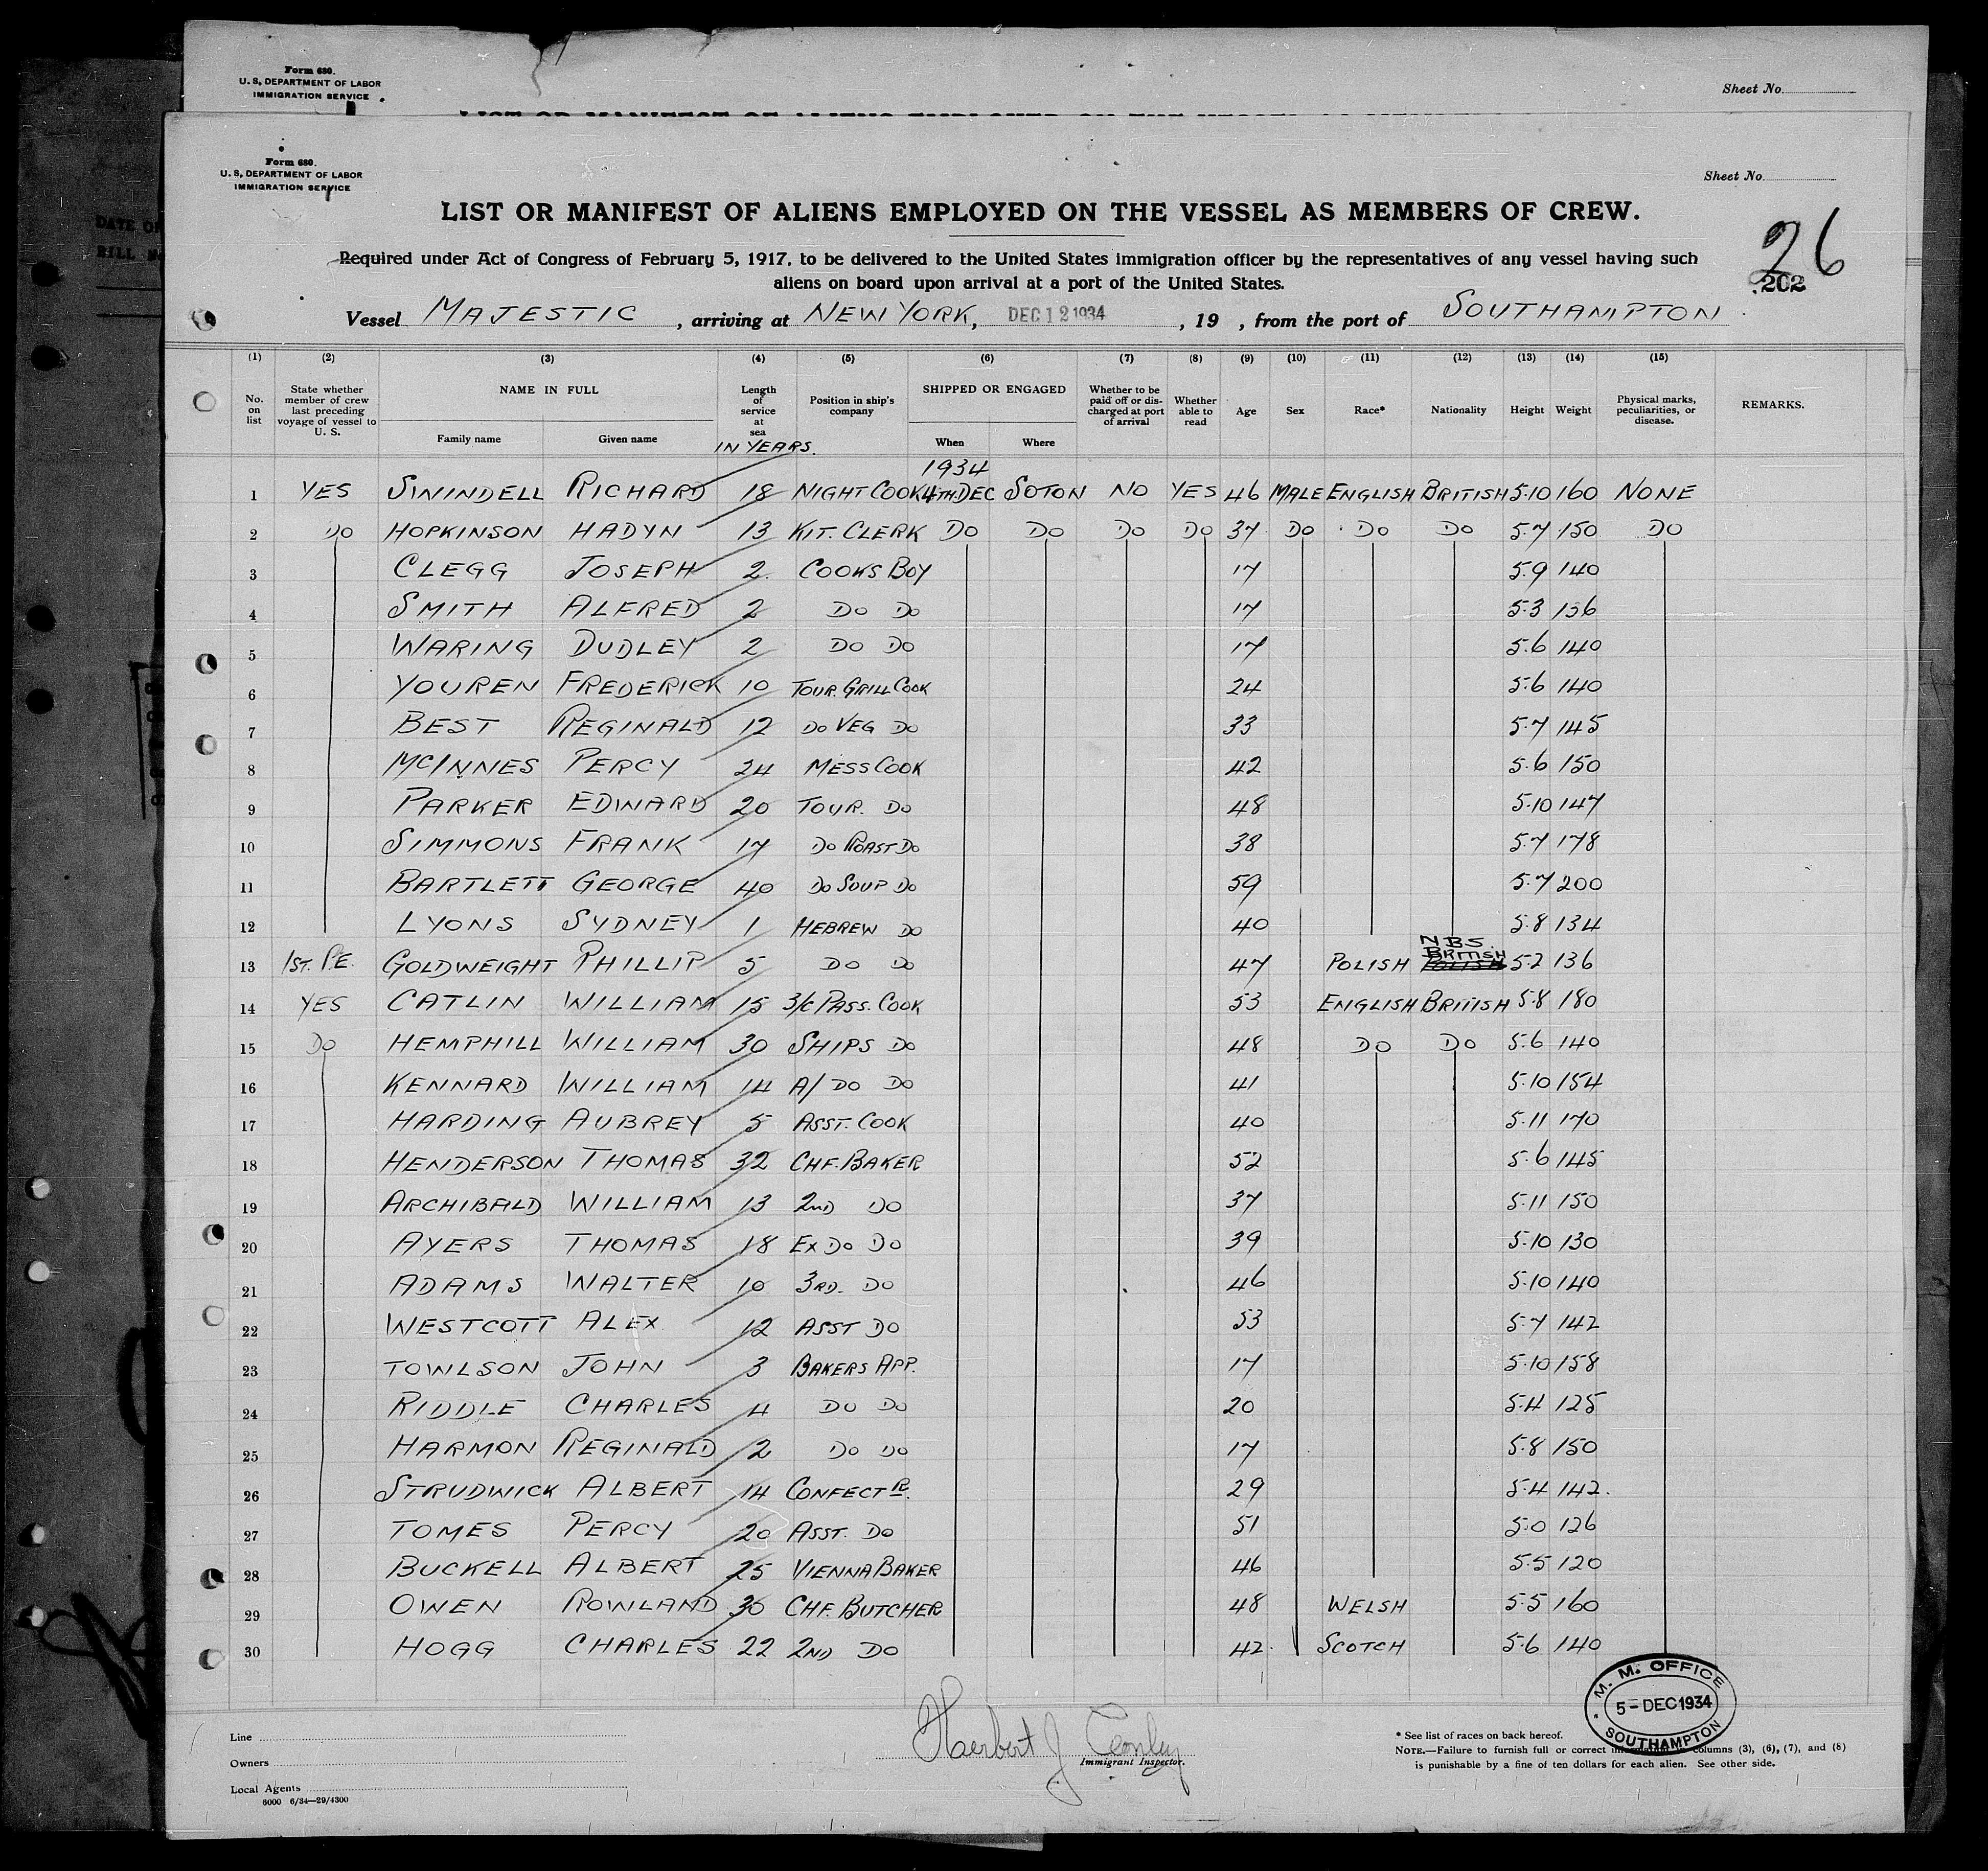 Form 680.
U. S. DEPARTMENT OF LABOR
IMMIGRATION SERVICE
Sheet No.
Form 680.
U. S. DEPARTMENT OF LABOR
IMMIGRATION SERVICE
Sheet No.
LIST OR MANIFEST OF ALIENS EMPLOYED ON THE VESSEL AS MEMBERS OF CREW.
26
Required under Act of Congress of February 5, 1917, to be delivered to the United States immigration officer by the representatives of any vessel having such
aliens on board upon arrival at a port of the United States.
202
Vessel MAJESTIC, arriving at NEW YORK, DEC 12 1934, 19 , from the port of SOUTHAMPTON
(1) (2) (3) (4) (5) (6) (7) (8) (9) (10) (11) (12) (13) (14) (15)
No. on list State whether member of crew last preceding voyage of vessel to U. S. NAME IN FULL Family name Given name Length of service at sea IN YEARS. Position in ship's company SHIPPED OR ENGAGED When Where Whether to be paid off or discharged at port of arrival Whether able to read Age Sex Race* Nationality Height Weight Physical marks, peculiarities, or disease. REMARKS.
1934
1 YES SWINDELL RICHARD 18 NIGHT COOK 4TH DEC SOTON NO YES 46 MALE ENGLISH BRITISH 5-10 160 NONE
2 DO HOPKINSON HADYN 13 KIT. CLERK DO DO DO DO 37 DO DO DO 5-7 150 DO
3 CLEGG JOSEPH 2 COOKS BOY 17 5-9 140
4 SMITH ALFRED 2 DO DO 17 5-3 136
5 WARING DUDLEY 2 DO DO 17 5-6 140
6 YOUREN FREDERICK 10 TOUR. GRILL COOK 24 5-6 140
7 BEST REGINALD 12 DO VEG DO 33 5-7 145
8 McINNES PERCY 24 MESS COOK 42 5-6 150
9 PARKER EDWARD 20 TOUR. DO 48 5-10 147
10 SIMMONS FRANK 17 DO ROAST DO 38 5-7 178
11 BARTLETT GEORGE 40 DO SOUP DO 59 5-7 200
12 LYONS SYDNEY 1 HEBREW DO 40 5-8 134
13 1ST. P.E. GOLDWEIGHT PHILLIP 5 DO DO 47 POLISH N.B.S. BRITISH POLISH 5-2 136
14 YES CATLIN WILLIAM 15 3/C PASS. COOK 53 ENGLISH BRITISH 5-8 180
15 DO HEMPHILL WILLIAM 30 SHIPS DO 48 DO DO 5-6 140
16 KENNARD WILLIAM 14 A/ DO DO 41 5-10 154
17 HARDING AUBREY 5 ASST. COOK 40 5-11 170
18 HENDERSON THOMAS 32 CHF. BAKER 52 5-6 145
19 ARCHIBALD WILLIAM 13 2ND DO 37 5-11 150
20 AYERS THOMAS 18 EX DO DO 39 5-10 130
21 ADAMS WALTER 10 3RD. DO 46 5-10 140
22 WESTCOTT ALEX 12 ASST DO 53 5-7 142
23 TOWLSON JOHN 3 BAKERS APP. 17 5-10 158
24 RIDDLE CHARLES 4 DO DO 20 5-4 125
25 HARMON REGINALD 2 DO DO 17 5-8 150
26 STRUDWICK ALBERT 14 CONFECTR. 29 5-4 142.
27 TOMES PERCY 20 ASST. DO 51 5-0 126
28 BUCKELL ALBERT 25 VIENNA BAKER 46 5-5 120
29 OWEN ROWLAND 30 CHF. BUTCHER 48 WELSH 5-5 160
30 HOGG CHARLES 22 2ND DO 42. SCOTCH 5-6 140
M. M. OFFICE
5-DEC 1934
SOUTHAMPTON
Line
Owners
Local Agents
6000 6/34—29/4300
Herbert J
Immigrant Inspector.
* See list of races on back hereof.
NOTE.—Failure to furnish full or correct columns (3), (6), (7), and (8)
is punishable by a fine of ten dollars for each alien. See other side.